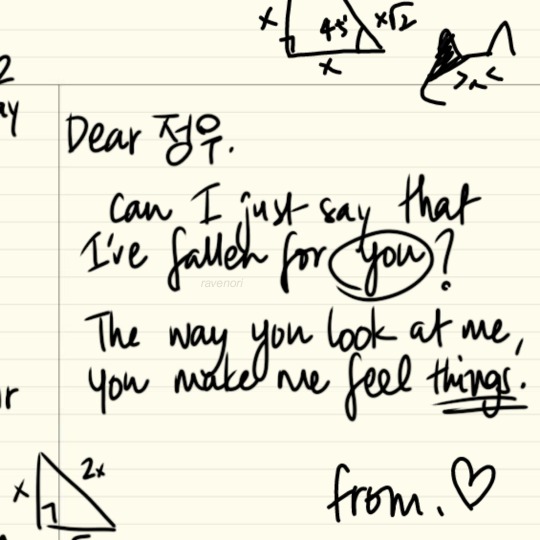 x 45° x√2
x
2
ay
Dear 정우.
can I just say that
I've fallen for you?
ravenori
The way you look at me,
you make me feel things.
r
from. ♡
x 2x